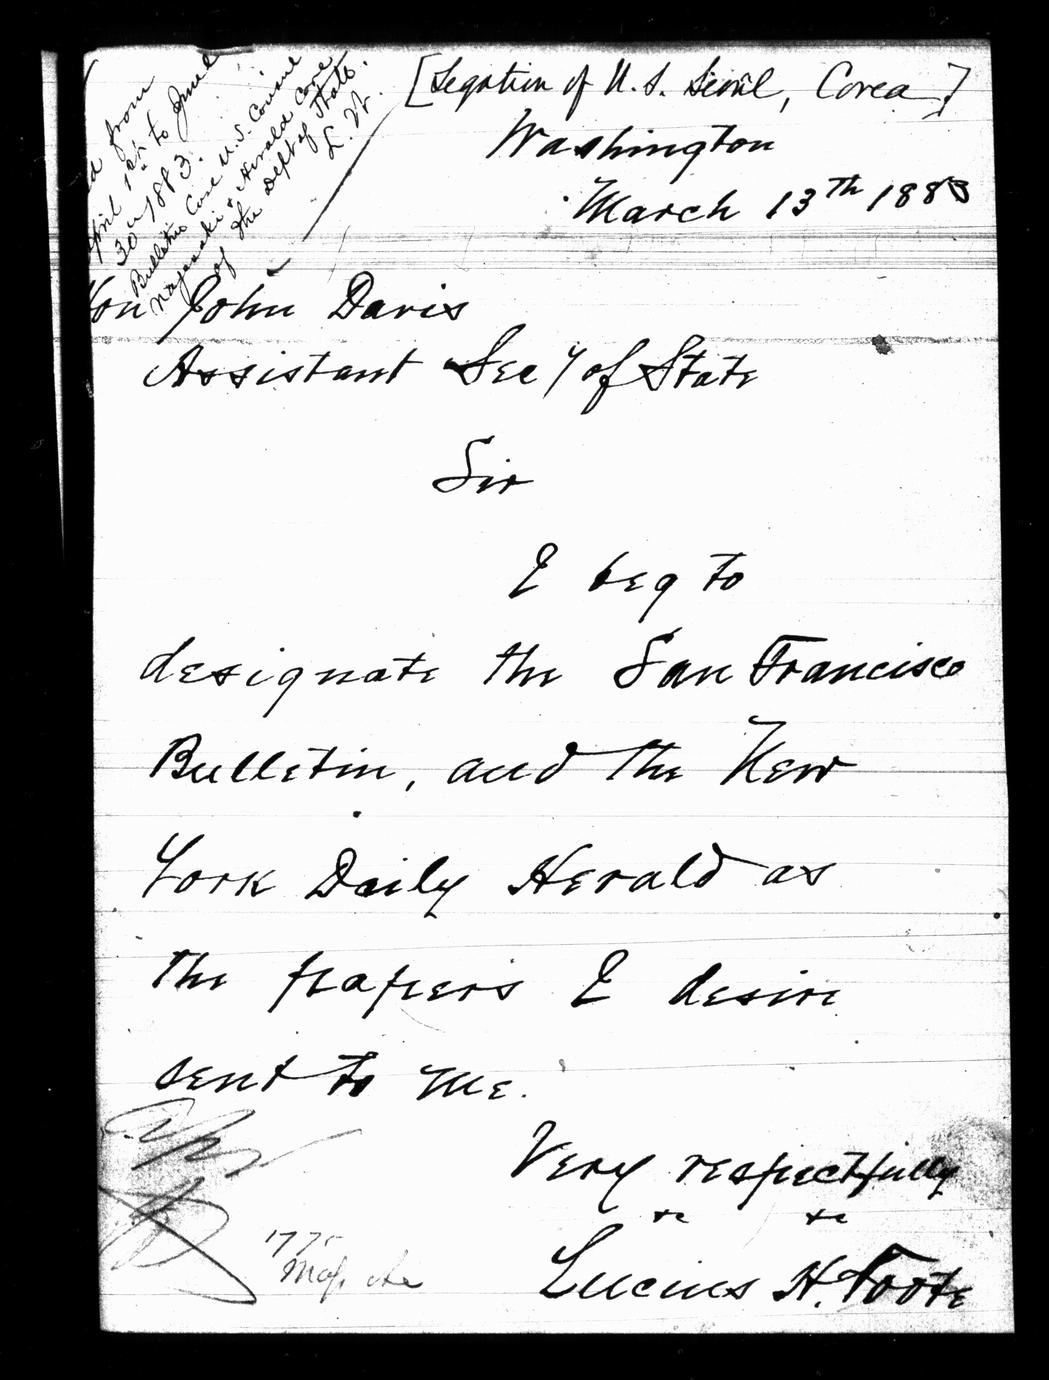 from
April 1st to June
30" 1883.
Bulletin Care U.S. Consul
Nagasaki & Herald Care
of the Dept of State.
L. W.
[Legation of U.S. Seoul, Corea]
Washington
March 13th 1883
Hon John Davis
Assistant Sec'y of State
Sir
I beg to
designate the San Francisco
Bulletin, and the New
York Daily Herald as
the papers I desire
sent to me.
Very respectfully
&c &c
Lucius H. Foote